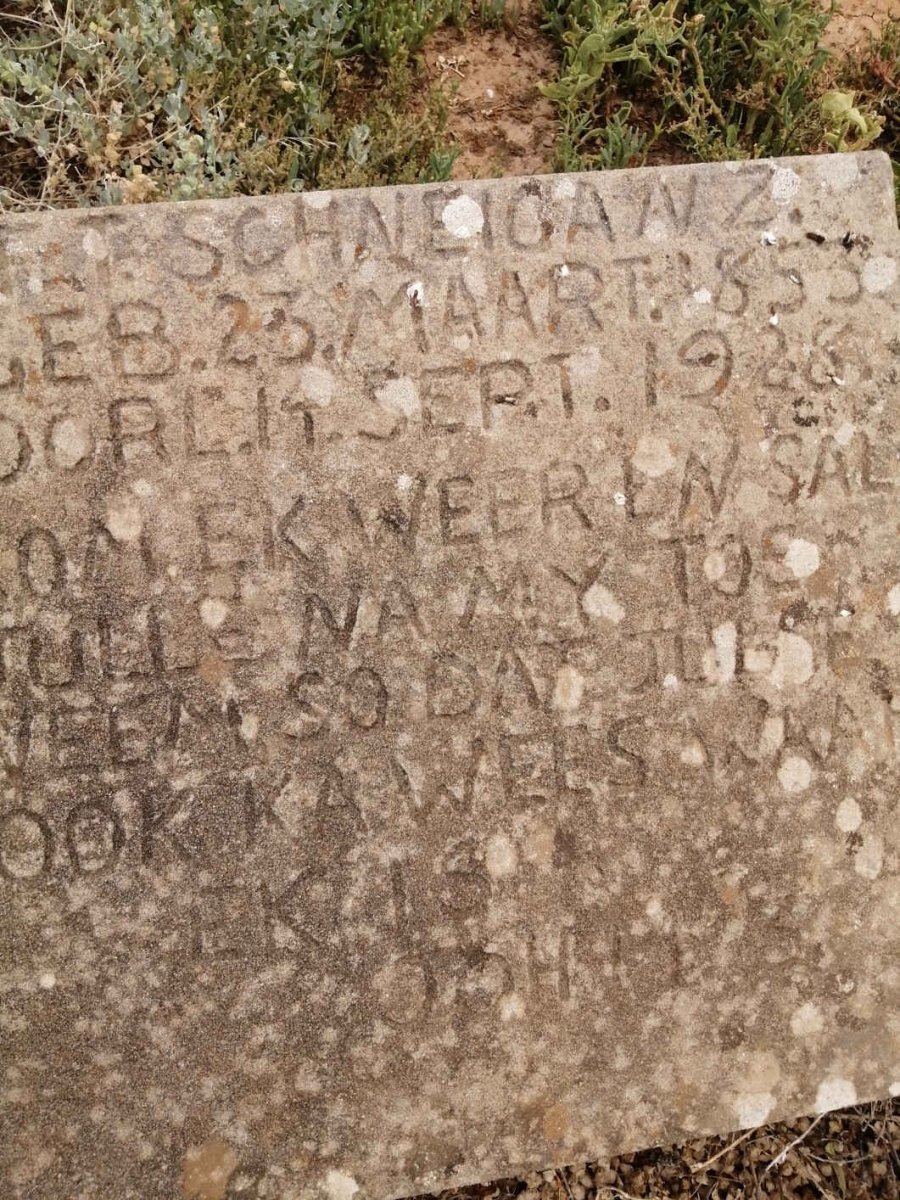 ET SCHNEIDANZ.
GEB. 23. MAART. 1855
OORL. 14. SEPT. 19
KOM EK WEER EN SAL
JULLE NA MY TOE
NEEM SODAT JULLE
OOK KA WEES WAAR
EK IS
JOH 14